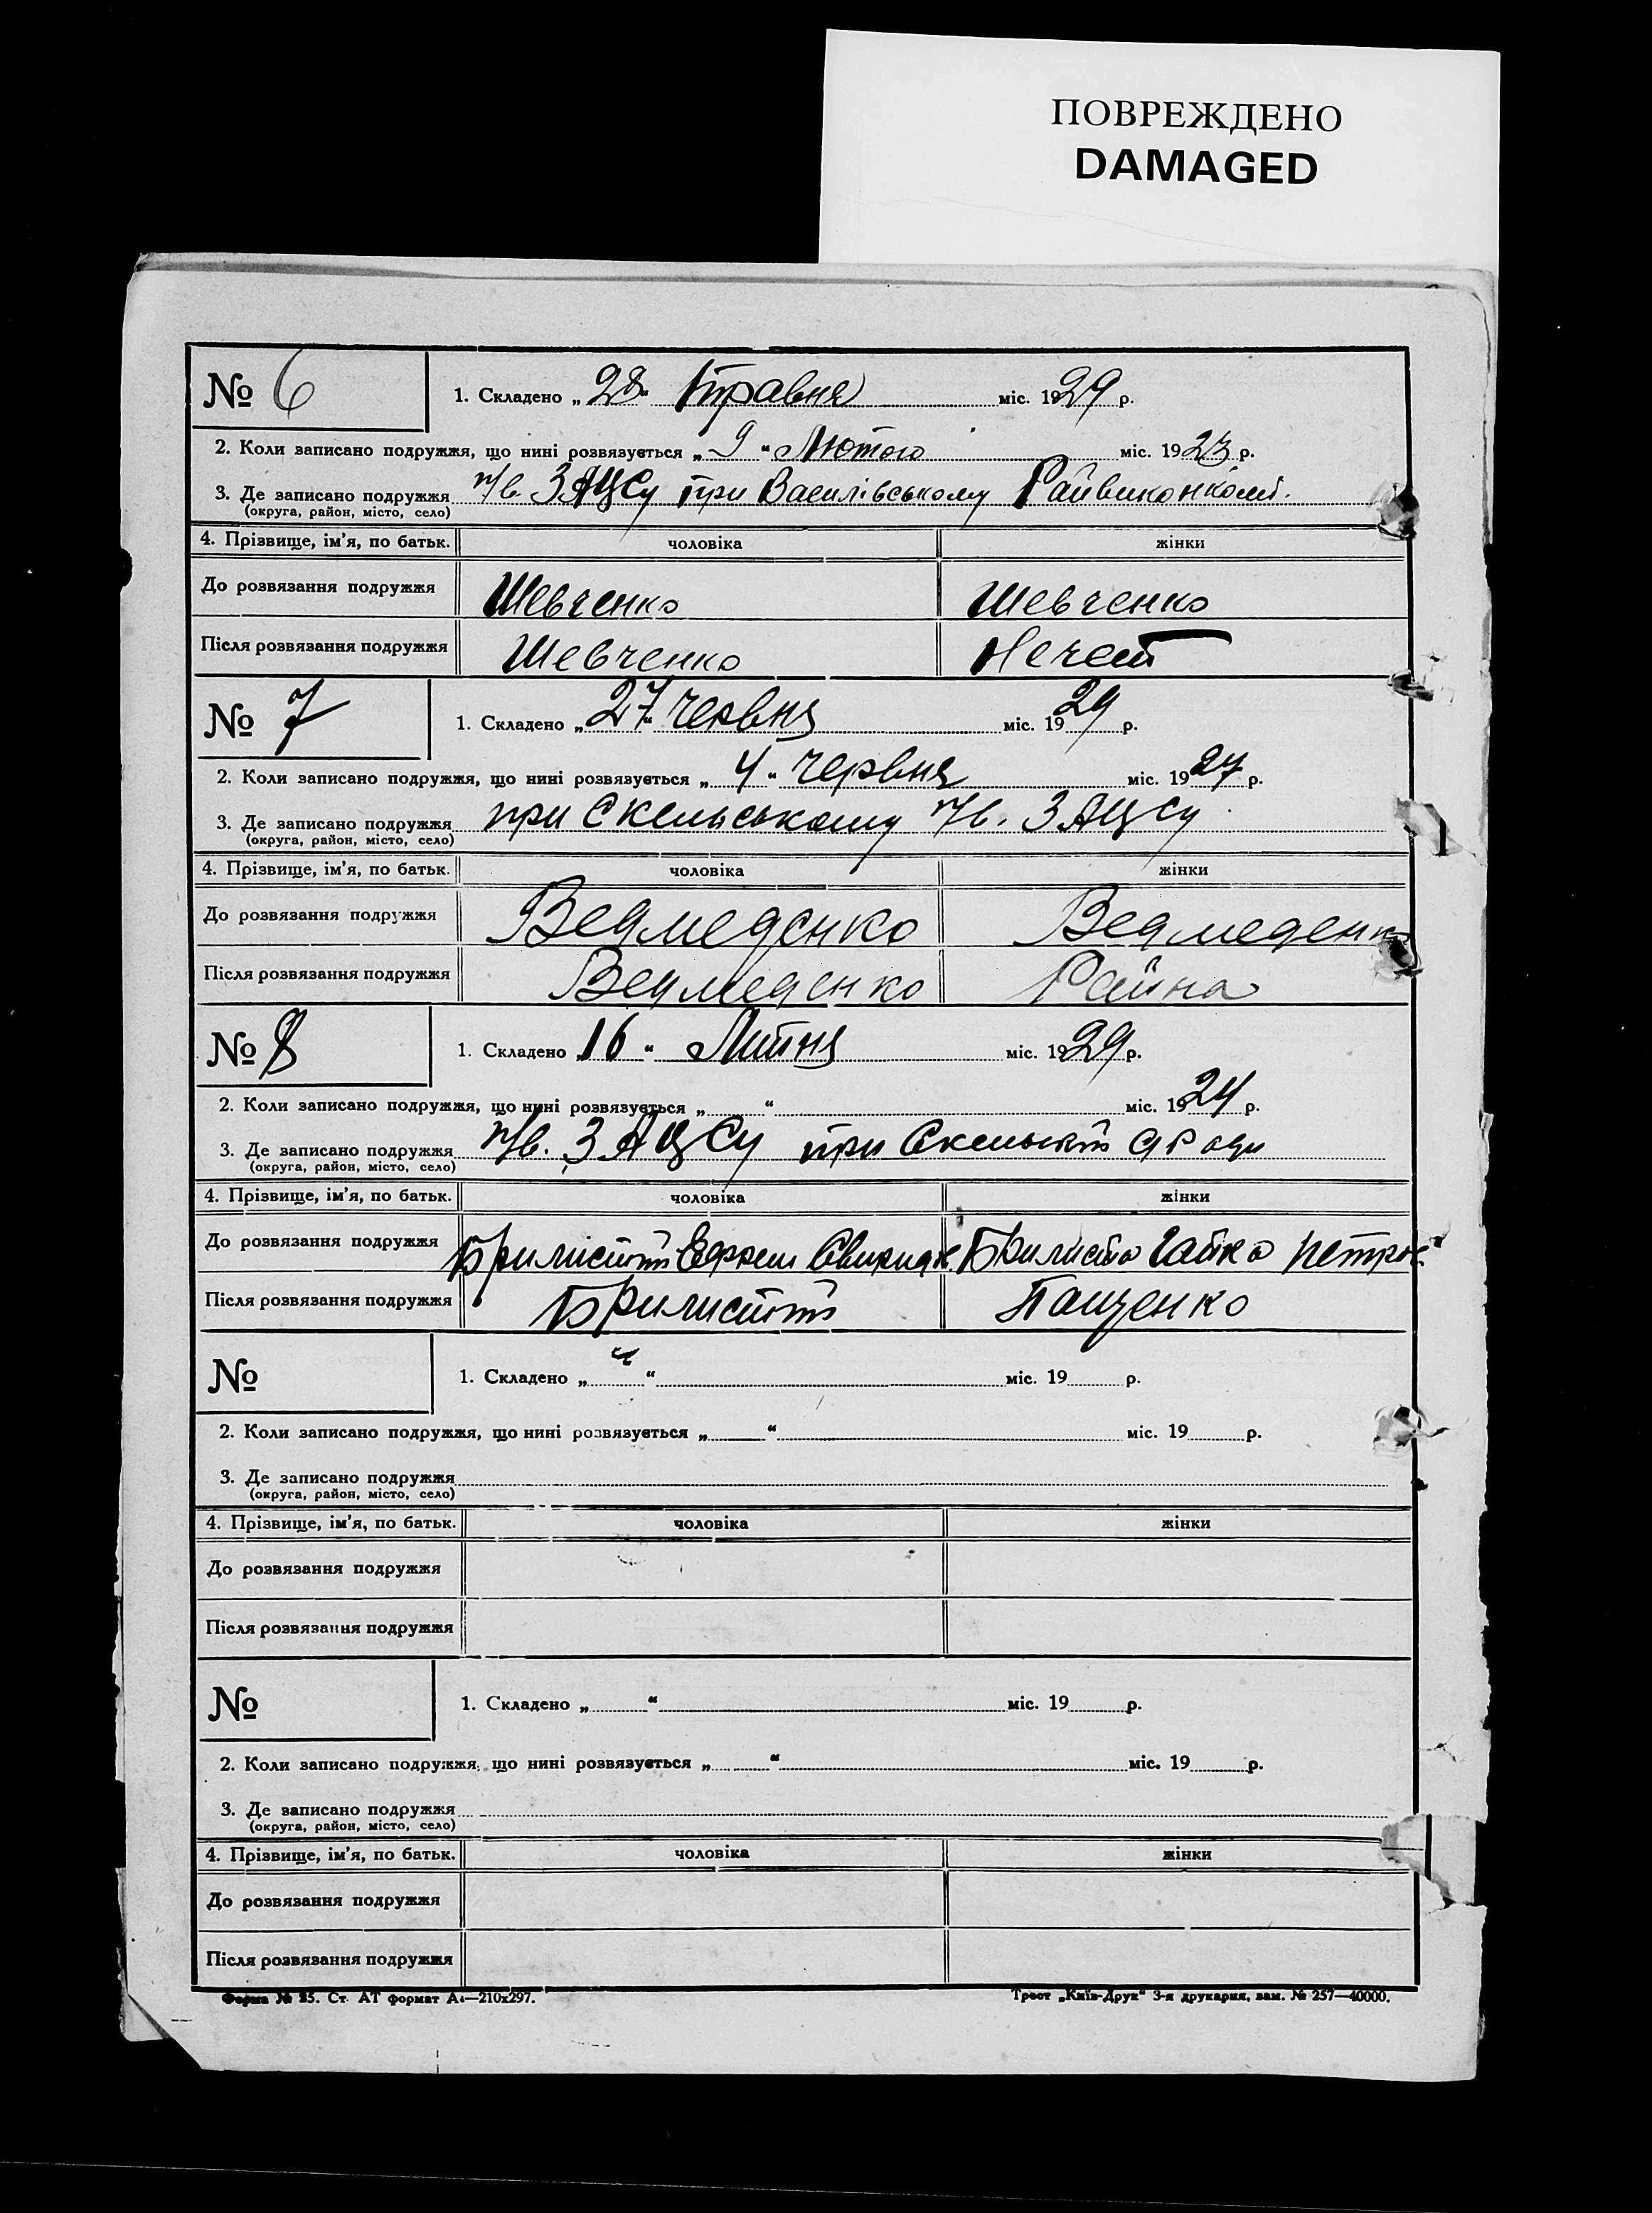 ПОВРЕЖДЕНО
DAMAGED
№ 6
1. Складено „ 28 “ травня міс. 1929 р.
2. Коли записано подружжя, що нині розвязується „ 9 “ Лютого міс. 1923 р.
3. Де записано подружжя п/в ЗАЦСу при Василівському Райвиконкомі.
(округа, район, місто, село)
4. Прізвище, ім'я, по батьк. чоловіка жінки
До розвязання подружжя Шевченко Шевченко
Після розвязання подружжя Шевченко
№ 7
1. Складено „ 27 “ червня міс. 1929 р.
2. Коли записано подружжя, що нині розвязується „ 4 “ червня міс. 1927 р.
3. Де записано подружжя при Скельському п/в. ЗАЦСу
(округа, район, місто, село)
4. Прізвище, ім'я, по батьк. чоловіка жінки
До розвязання подружжя Ведмеденко Ведмеденко
Після розвязання подружжя Ведмеденко
№ 8
1. Складено 16 “ Липня міс. 1929 р.
2. Коли записано подружжя, що нині розвязується „ “ міс. 1924 р.
3. Де записано подружжя п/в. ЗАЦСу при
(округа, район, місто, село)
4. Прізвище, ім'я, по батьк. чоловіка жінки
До розвязання подружжя
Після розвязання подружжя Пащенко
№
1. Складено „ “ міс. 19 р.
2. Коли записано подружжя, що нині розвязується „ “ міс. 19 р.
3. Де записано подружжя
(округа, район, місто, село)
4. Прізвище, ім'я, по батьк. чоловіка жінки
До розвязання подружжя
Після розвязання подружжя
№
1. Складено „ “ міс. 19 р.
2. Коли записано подружжя, що нині розвязується „ “ міс. 19 р.
3. Де записано подружжя
(округа, район, місто, село)
4. Прізвище, ім'я, по батьк. чоловіка жінки
До розвязання подружжя
Після розвязання подружжя
Форма № 25. Ст. АТ формат А4—210x297. Трест „Київ-Друк“ 3-я друкарня, зам. № 257—40000.